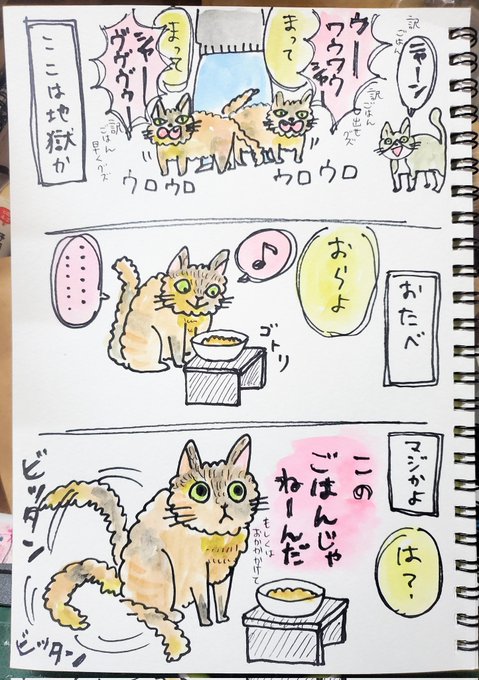 ニャーン
訳
ごはん
ウー
ウウウウ
シャー
訳
ごはん
出せグズ
まって
まって
シャー
ヴヴヴヴー
訳
ごはん
早くグズ
ウロウロ
ウロウロ
ここは地獄か
おたべ
おらよ
♪
ゴトリ
………
マジかよ
は?
この
ごはんじゃ
ねーんだ
もしくは
おかかかけて
ビッタン
ビッタン